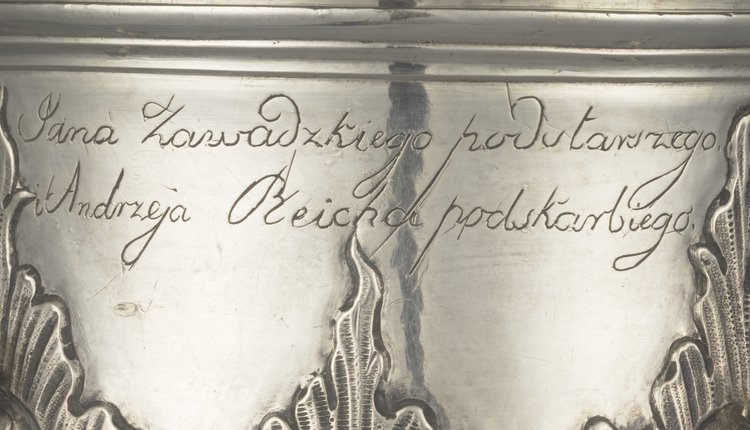 Jana Zawadzkiego podstarszego,
i Andrzeja Reicha podskarbiego.